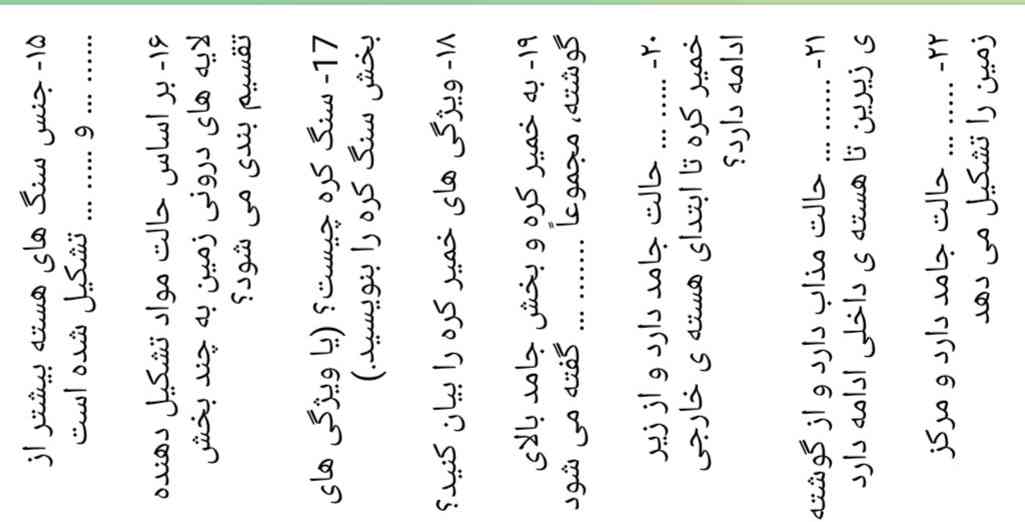 ۱۵- جنس سنگ های هسته بیشتر از
... ...... و ... ...... تشکیل شده است
۱۶- بر اساس حالت مواد تشکیل دهنده
لایه های درونی زمین به چند بخش
تقسیم بندی می شود؟
17- سنگ کره چیست؟ (یا ویژگی های
بخش سنگ کره را بنویسید.)
۱۸- ویژگی های خمیر کره را بیان کنید؟
۱۹- به خمیر کره و بخش جامد بالای
گوشته، مجموعاً ... ....... گفته می شود
۲۰- ...... ... حالت جامد دارد و از زیر
خمیر کره تا ابتدای هسته ی خارجی
ادامه دارد؟
۲۱- ....... ... حالت مذاب دارد و از گوشته
ی زیرین تا هسته ی داخلی ادامه دارد
۲۲- ...... ... حالت جامد دارد و مرکز
زمین را تشکیل می دهد